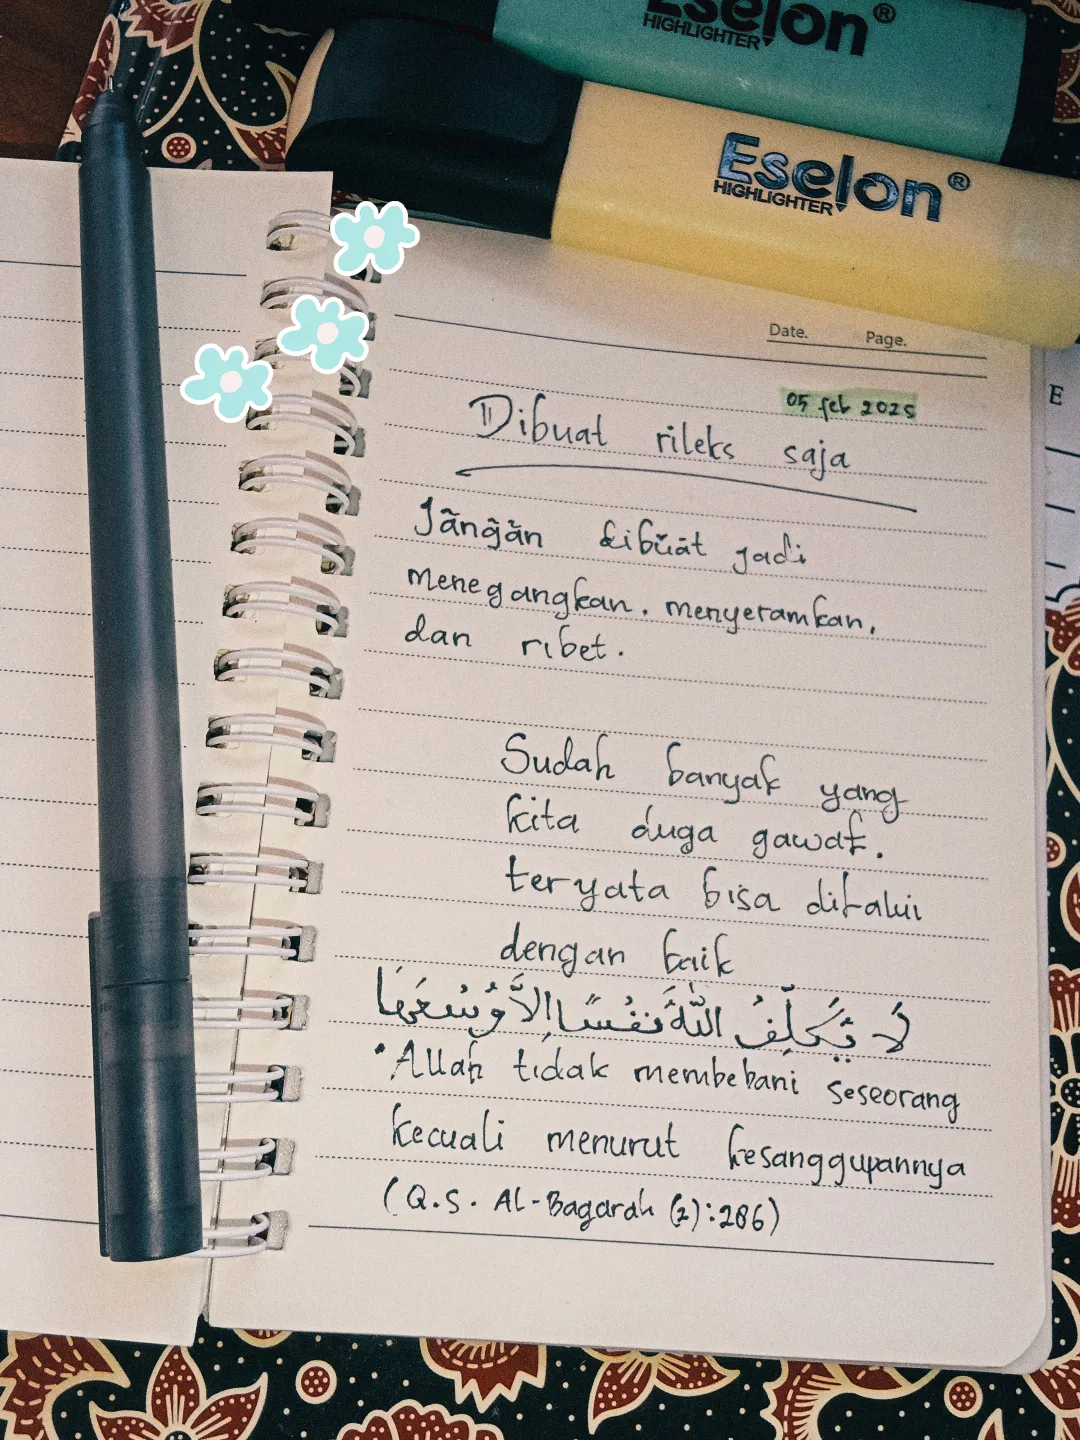 Eselon®
HIGHLIGHTER
Eselon®
HIGHLIGHTER
Date. Page.
E
05 feb 2025
Dibuat rileks saja
Jangan dibuat jadi
menegangkan. menyeramkan,
dan ribet.
Sudah banyak yang
kita duga gawat.
ternyata bisa dilalui
dengan baik
لَا يُكَلِّفُ اللّٰهُ نَفْسًا اِلَّا وُسْعَهَا
"Allah tidak membebani seseorang
kecuali menurut kesanggupannya
(Q.S. Al-Baqarah (2):286)